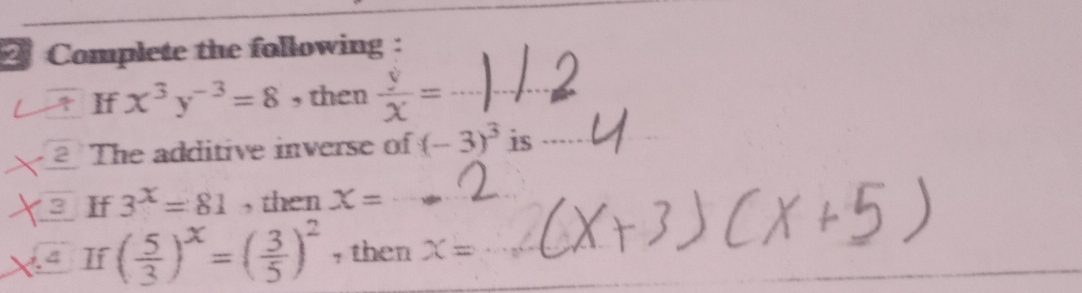 2 Complete the following :
1 If x³ y⁻³ = 8 , then y/x = ........ 1/2
2 The additive inverse of (– 3)³ is ...... 4
3 If 3ˣ = 81 , then x = - 2
4 If (5/3)ˣ = (3/5)² , then x = ...... (x+3) (x+5)